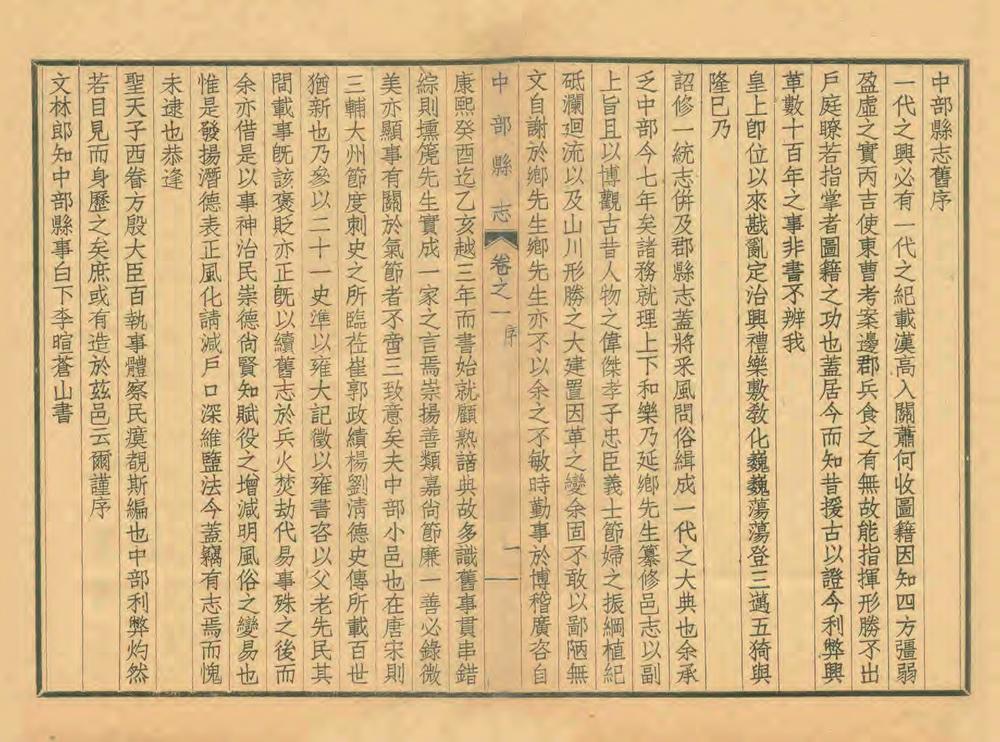 中部縣志舊序
一代之興必有一代之紀載漢高入關蕭何收圖籍因知四方彊弱
盈虛之實丙吉使東曹考案邊郡兵食之有無故能指揮形勝不出
戶庭瞭若指掌者圖籍之功也蓋居今而知昔援古以證今利弊興
革數十百年之事非書不辨我
皇上卽位以來戡亂定治興禮樂敷敎化巍巍蕩蕩登三邁五猗與
隆已乃
詔修一統志倂及郡縣志蓋將采風問俗緝成一代之大典也余承
乏中部今七年矣諸務就理上下和樂乃延鄉先生纂修邑志以副
上旨且以博觀古昔人物之偉傑孝子忠臣義士節婦之振綱植紀
砥瀾廻流以及山川形勝之大建置因革之變余固不敢以鄙陋無
文自謝於鄉先生鄉先生亦不以余之不敏時勤事於博稽廣咨自
中部縣志 卷之一 序 一
康熙癸酉迄乙亥越三年而書始就顧熟諳典故多識舊事貫串錯
綜則壎箎先生實成一家之言焉崇揚善類嘉尙節廉一善必錄微
美亦顯事有關於氣節者不啻三致意矣夫中部小邑也在唐宋則
三輔大州節度刺史之所臨莅崔郭政績楊劉淸德史傳所載百世
猶新也乃參以二十一史準以雍大記徵以雍書咨以父老先民其
間載事旣該褒貶亦正旣以續舊志於兵火焚劫代易事殊之後而
余亦借是以事神治民崇德尙賢知賦役之增減明風俗之變易也
惟是發揚潛德表正風化請減戶口深維鹽法今蓋竊有志焉而愧
未逮也恭逢
聖天子西眷方殷大臣百執事體察民瘼覩斯編也中部利弊灼然
若目見而身歷之矣庶或有造於茲邑云爾謹序
文林郎知中部縣事白下李暄蒼山書